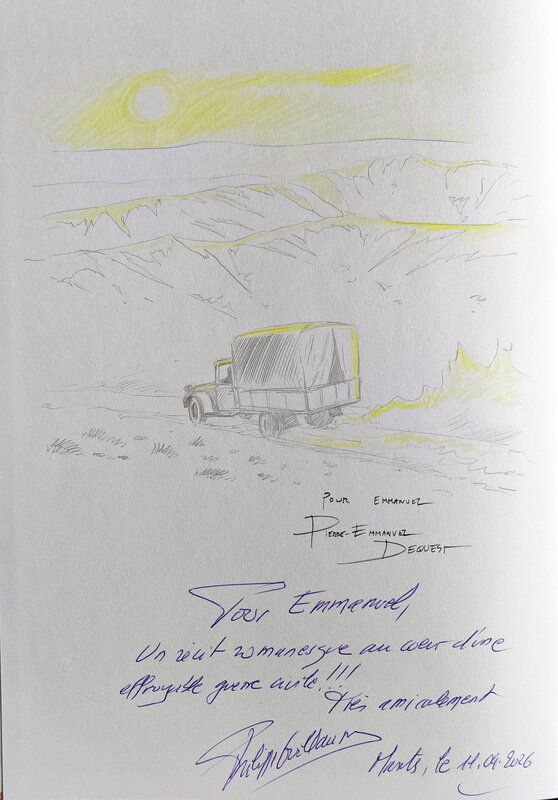 POUR EMMANUEL
PIERRE-EMMANUEL
DEQUEST
Pour Emmanuel,
Un récit romanesque au cœur d'une
effroyable guerre civile!!!
Très amicalement
le 11.04.2026